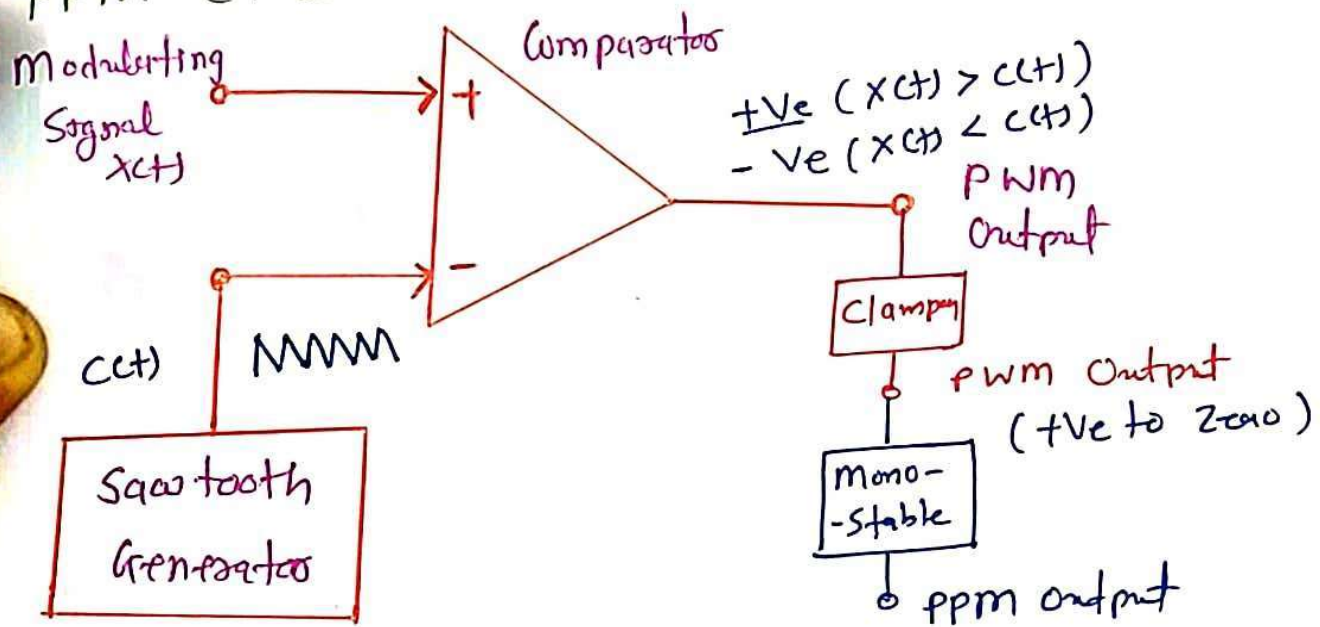 Modulating
Signal
x(t)
+
Comparator
+Ve (x(t) > c(t))
- Ve (x(t) < c(t))
PWM
Output
-
c(t)
Clamper
PWM Output
(+Ve to Zero)
Sawtooth
Generator
Mono-
-Stable
PPM output